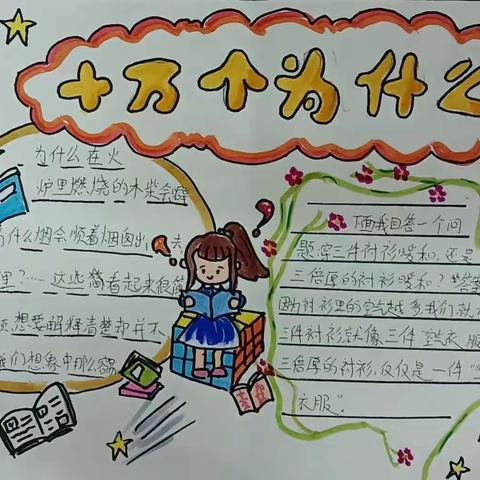 十万个为什么
为什么在火
炉里燃烧的木柴会
为什么烟会顺着烟囱出去
里?……这些 看起来很
想要解释清楚却并不
我们想象中那么容
下面我回答一个问
题:穿三件衬衫暖和,还是
三倍厚的衬衫暖和?答案
因为衬衫里的空气越多,我们就
三件衬衫就像三件空气衣服
三倍厚的衬衫,仅仅是一件"
衣服"。